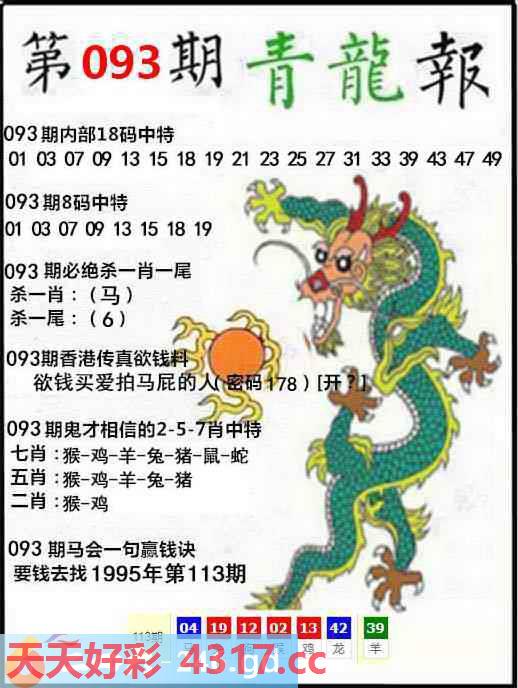 第093期 青龍報
093期内部18码中特
01 03 07 09 13 15 18 19 21 23 25 27 31 33 39 43 47 49
093期8码中特
01 03 07 09 13 15 18 19
093期必绝杀一肖一尾
杀一肖：（马）
杀一尾：（6）
093期香港传真欲钱料
欲钱买爱拍马屁的人(密码178）[开？]
093期鬼才相信的2-5-7肖中特
七肖：猴-鸡-羊-兔-猪-鼠-蛇
五肖：猴-鸡-羊-兔-猪
二肖：猴-鸡
093期马会一句赢钱诀
要钱去找1995年第113期
113期 04 19 12 02 13 42 39
鸡 龙 羊
天天好彩 4317.cc